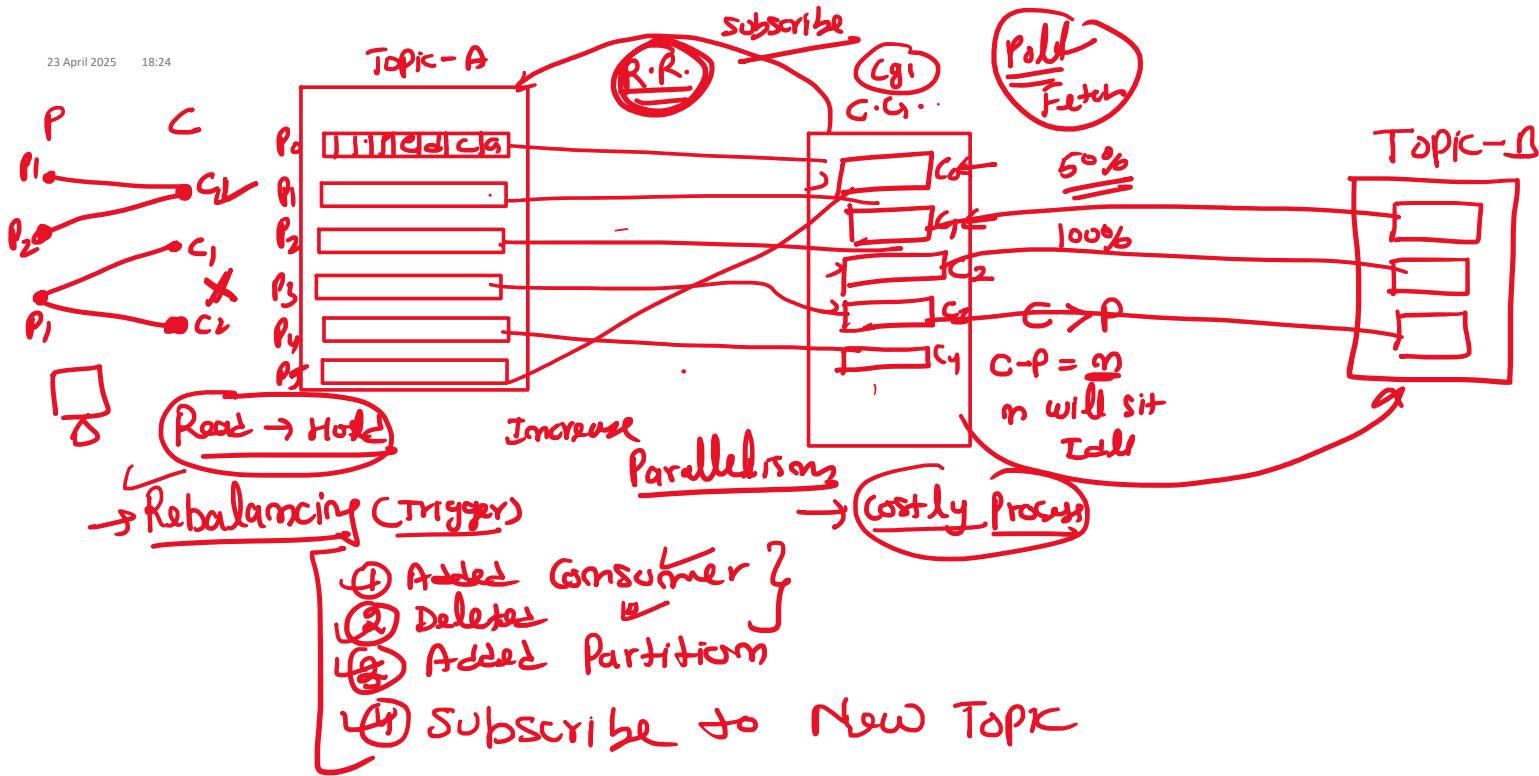 23 April 2025 18:24
Topic-A
R.R.
Subscribe
Cg1
C.G..
Poll
Fetch
Topic-B
P C
P1
P2
C1
P1
C1
C2
P0
P1
P2
P3
P4
P5
C0
C1
C2
C3
C4
50%
100%
C > P
C-P = n
n will sit
Idle
Read → Hold
Increase
Parallelism
→ Rebalancing (Trigger)
→ Costly Process
1 Added Consumer }
2 Deleted "
3 Added Partition
4 Subscribe to New Topic